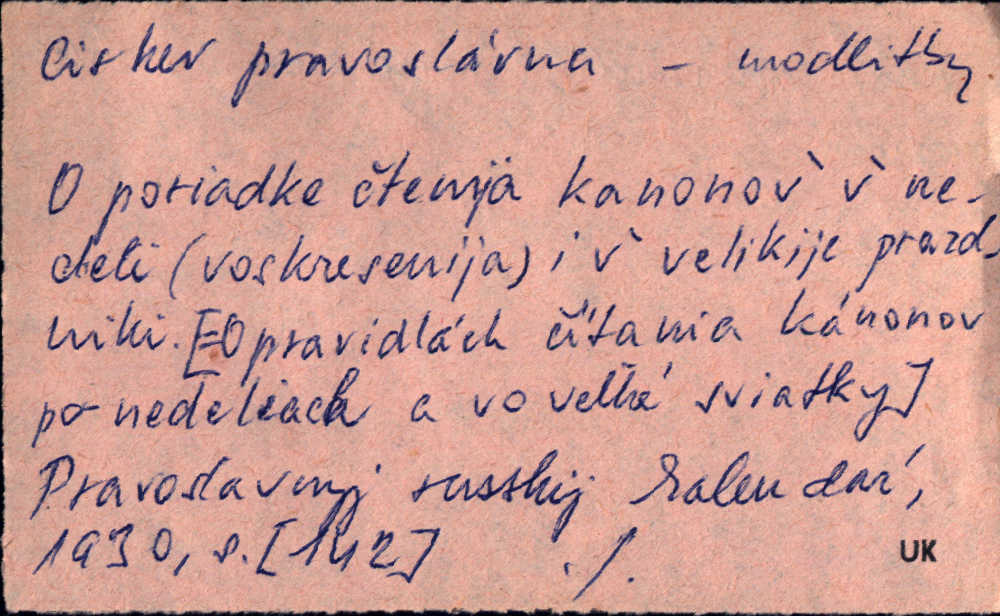 Cirkev pravoslávna - modlitby
O poriadke čtenija kanonov v ne-
deli (voskresenija) i v velikije prazd-
niki. [=O pravidlách čítania kánonov
po nedeliach a vo veľké sviatky]
Pravoslavnyj russkij kalendař,
1930, s. [142] ./.
UK